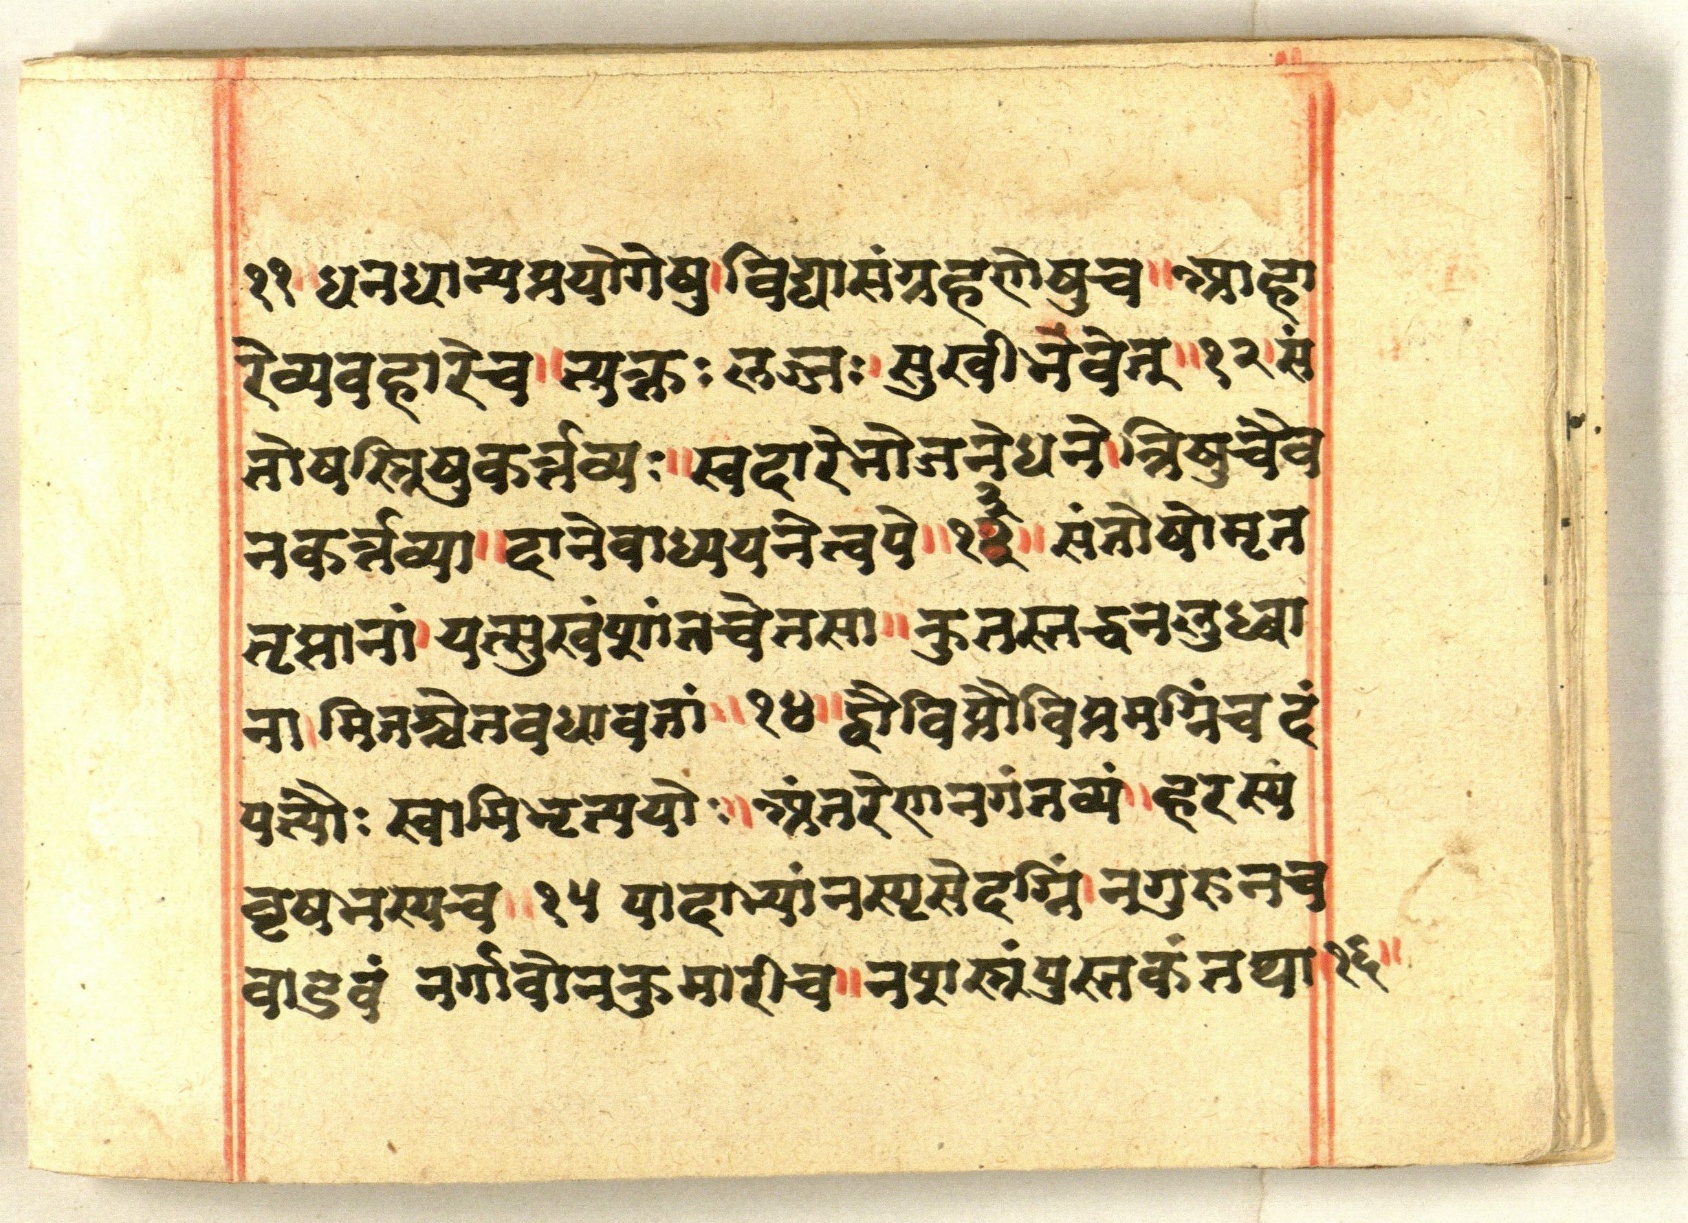 ११ ॥ धनधान्यप्रयोगेषु । विद्यासंग्रहणेषुच ॥ आहा
रेव्यवहारेच ॥ त्यक्तः लज्जः । सुखीभवेत् ॥ १२ । सं
तोषस्त्रिषुकर्त्तव्यः ॥ स्वदारेभोजनेधने । त्रिषुचैव
नकर्त्तव्या ॥ दानेवाध्ययनेत्वपे ॥ १३ ॥ संतोषोमृत
तृप्तानां । यत्सुखंशांतचेतसा ॥ कुतस्तद्धनलुब्धा
ना । मितश्चेतवधावतां ॥ १४ ॥ द्वौविप्रौविप्रमग्निंच दं
पत्योः स्वामिभृत्ययोः ॥ अंतरेणनगंतव्यं ॥ हरस्य
वृषभस्यच ॥ १५ पादाभ्यांनस्पृसेदग्निं । नगुरुनच
वाडवं नर्गावोनकुमारीच ॥ नशास्त्रंपुस्तकंतथा ॥ १६ ॥